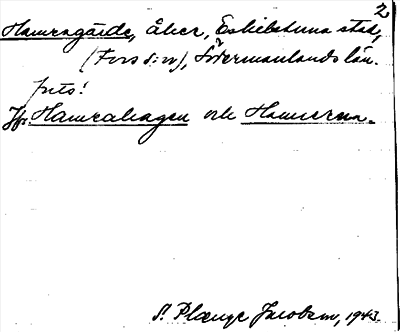 2
Hamragärde, åker, Eskilstuna stad,
(Fors s:n), Södermanlands län.
fnts!
Jfr. Hamrahagen och Hamrarna.
S. Plænge Jacobson, 1943.